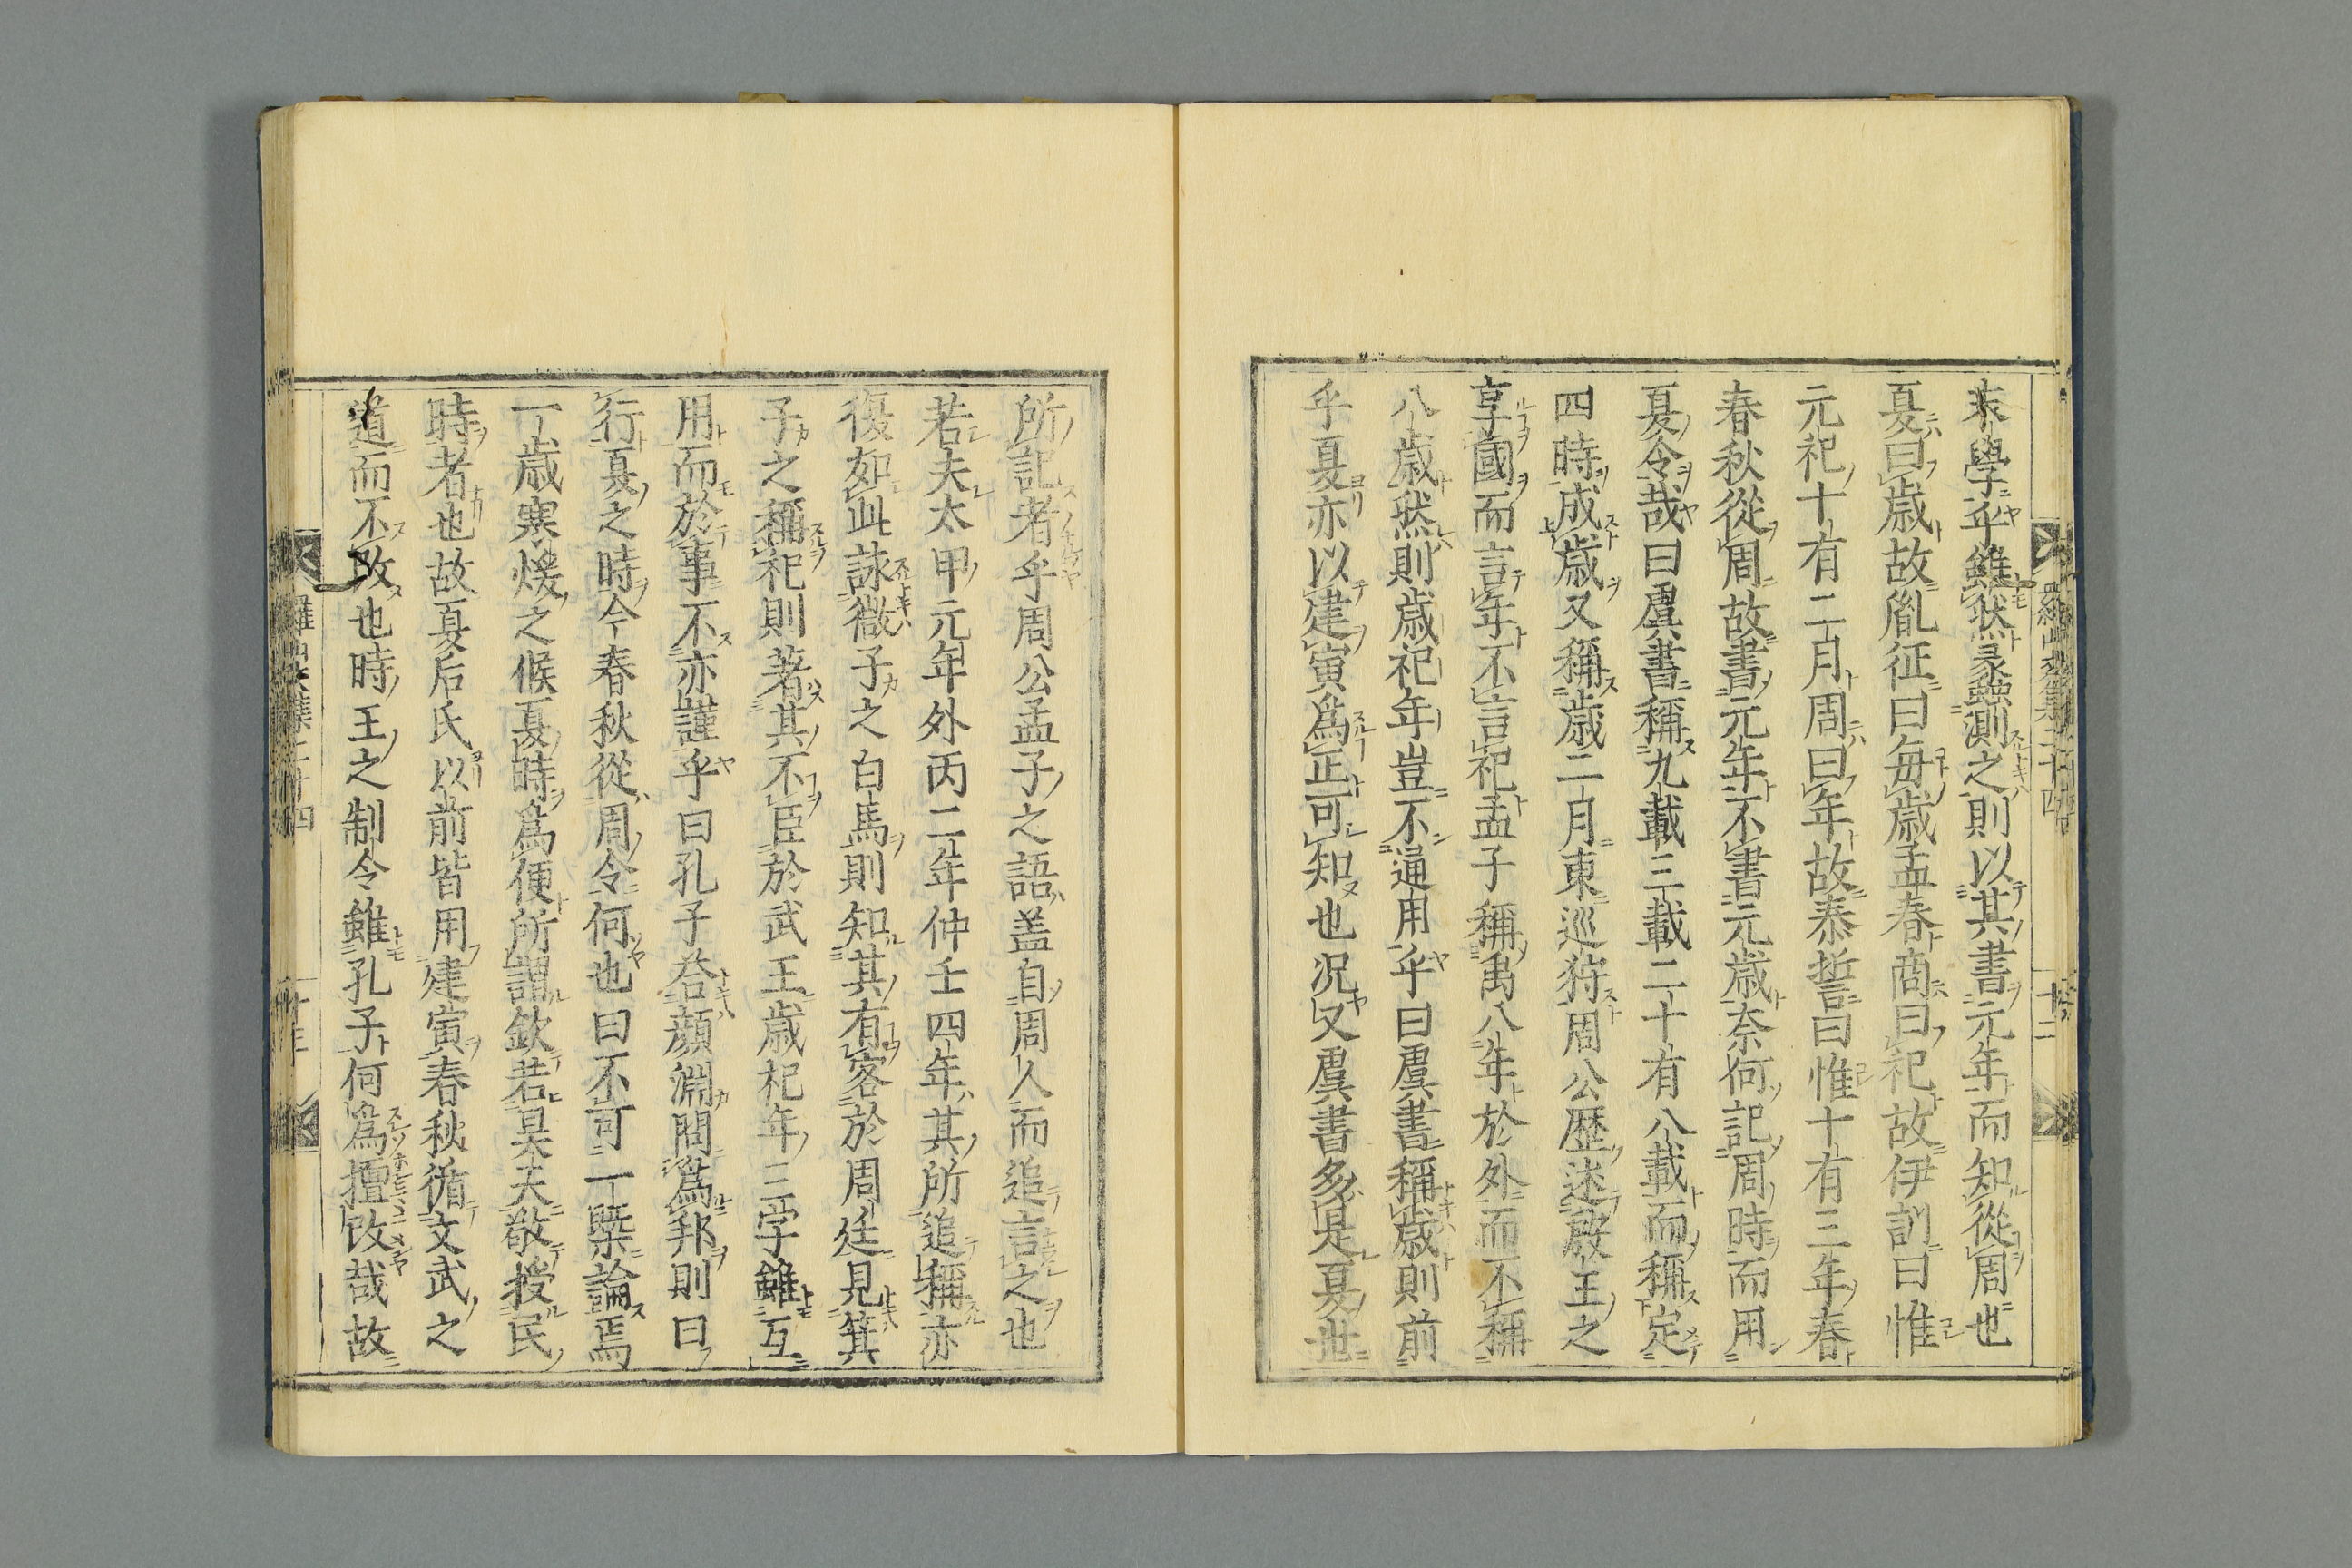 末學乎雖然彖蟸測之則以其書元年而知從周也
夏曰歳故胤征曰毎歳孟春商曰祀故伊訓曰惟
元祀十有二月周曰年故泰誓曰惟十有三年春
春秋從周故書元年不書元歳奈何記周時而用
夏令哉曰虞書稱九載三載二十有八載而稱定
四時成歳又稱歳二月東巡狩周公歴述殷王之
享國而言年不言祀孟子稱禹八年於外而不稱
八歳然則歳祀年豈不通用乎曰虞書稱歳則前
乎夏亦以建寅爲正可知也況又虞書多是夏世
所記者乎周公孟子之語盖自周人而追言之也
若夫太甲元年外丙二年仲壬四年其所追稱亦
復如此詠微子之白馬則知其有客於周廷見箕
子之稱祀則著其不臣於武王歳祀年三字雖互
用而於事不亦謹乎曰孔子荅顔淵問爲邦則曰
行夏之時今春秋從周令何也曰不可一槩論焉
一歳寒煖之候夏時爲便所謂欽若昊天敬授民
時者也故夏后氏以前皆用建寅春秋循文武之
道而不改也時王之制令雖孔子何爲擅改哉故